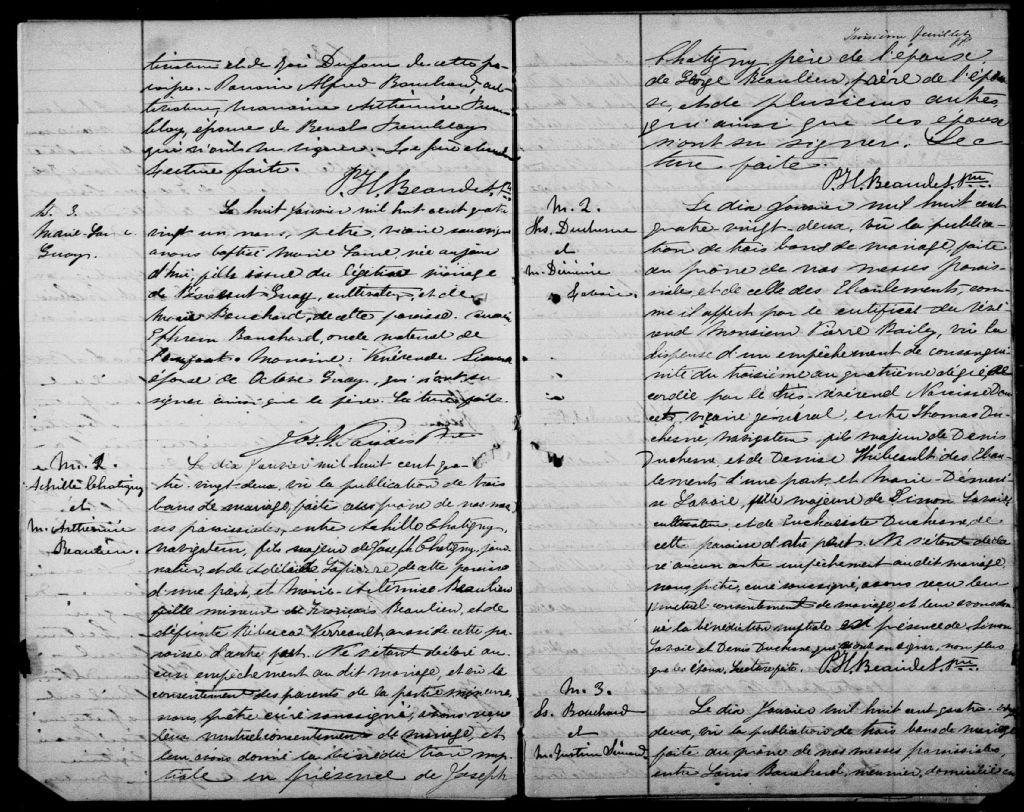 et de Zoé Dufour de cette pa-
roisse. Parrain Alfred Bouchard, cul-
tivateur, marraine Arthémise Trem
blay, épouse de Renel Tremblay
qui n'ont su signer. Le père absent
Lecture faite.
P.H. Beaudet, Ptre
B. 3.
Marie Laure
Guay.
Le huit Janvier mil huit cent quatre
vingt un nous, prêtre, vicaire soussigné
avons baptisé Marie Laure, née aujour
d'hui, fille issue du légitime mariage
de Vincent Guay, cultivateur, et de
Marie Bouchard, de cette paroisse. Parrain
Ephrem Bouchard, oncle maternel de
l'enfant. Marraine:
épouse de Octave Guay, qui n'ont su
signer ainsi que le père. Lecture faite.
Ptre
M. 1.
Achille Chatigny
et
M. Arthémise
Beaulieu.
Le dix Janvier mil huit cent qua-
tre-vingt-deux, vu la publication de trois
bans de mariage, faite au prône de nos mes-
ses paroissiales, entre Achille Chatigny,
navigateur, fils majeur de Joseph Chatigny, jour
nalier, et de Adélaïde Lapierre de cette paroisse
d'une part, et Marie-Artémise Beaulieu
fille mineure de François Beaulieu, et de
défunte Rébecca Verreault, aussi de cette pa-
roisse d'autre part. Ne s'étant déclaré au-
cun empêchement au dit mariage, et vu le
consentement des parents de la partie mineure,
nous, prêtre curé soussigné, avons reçu
leur mutuel consentement de mariage, et
leur avons donné la bénédiction nup-
tiale en présence de Joseph
Troisième feuillet
Chatigny père de l'époux,
de George Beaulieu, frère de l'épou
se, et de plusieurs autres
qui ainsi que les époux
n'ont su signer. Lec
ture faite.
P.H. Beaudet, Ptre
M. 2.
Ths. Duchesne
et
M. Démérise
Lavoie.
Le dix Janvier mil huit cent
quatre vingt-deux, vu la publica-
tion de trois bans de mariage, faite
au prône de nos messes parois-
siales, et de celle des Eboulements, com-
me il appert par le certificat du Révé
rend Monsieur Pierre Bailey, vu la
dispense d'un empêchement de consangui-
nité du troisième au quatrième degré ac-
cordée par le très-révérend Narcisse Dou
cet, vicaire général, entre Thomas Du-
chesne, navigateur, fils majeur de Denis
Duchesne, et de Denise Thibeault des Ebou
lements d'une part, et Marie-Démeri-
se Lavoie, fille majeure de Simon Lavoie
cultivateur, et de Euchariste Duchesne, de
cette paroisse d'autre part. Ne s'étant décla
ré aucun autre empêchement au dit mariage,
nous, prêtre, curé soussigné, avons reçu leur
mutuel consentement de mariage, et leur avons don-
né la bénédiction nuptiale en présence de Simon
Lavoie et Denis Duchesne qui n'ont su signer, non plus
que les époux. Lecture faite. P.H. Beaudet, Ptre
M. 3.
Ls. Bouchard
et
M. Justine Simard
Le dix Janvier mil huit cent quatre-vingt
deux, vu la publication de trois bans de mariage
faite au prône de nos messes paroissiales,
entre Louis Bouchard, meunier, domicilié en